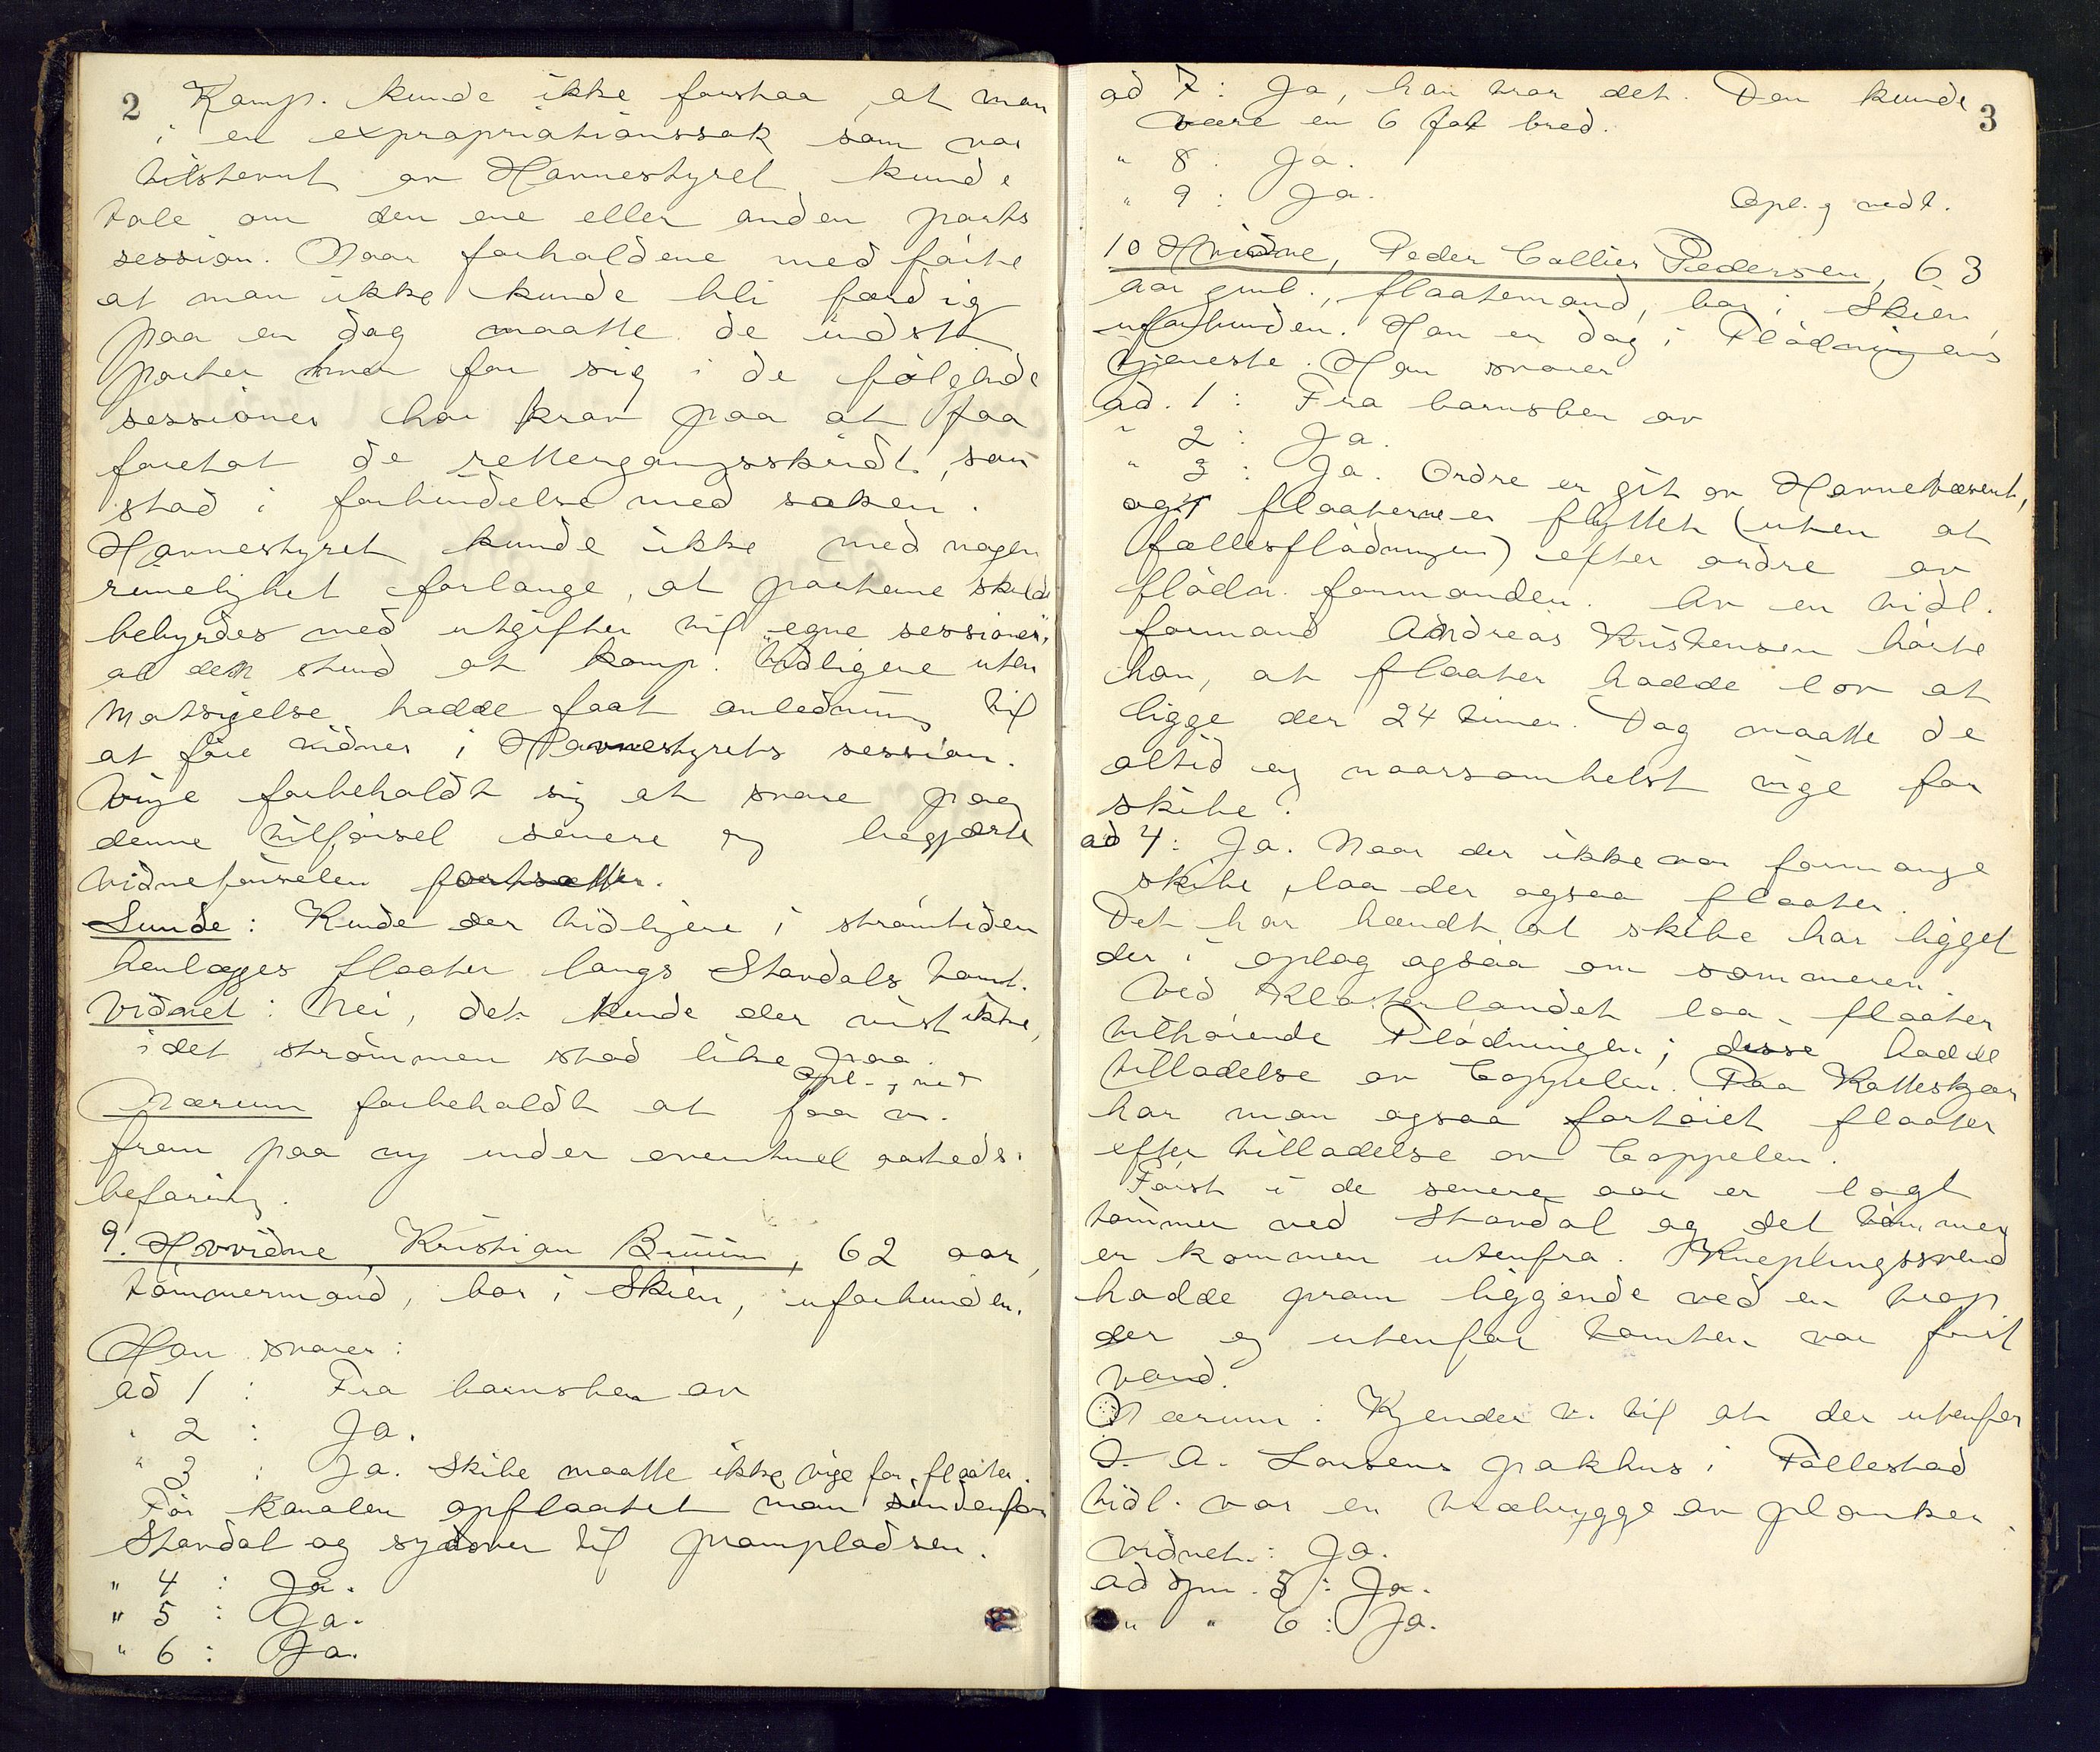 2
Komp. kunde ikke forstaa, at man
i en expropriationssak som var
tilstevnt av Havnestyret kunde
tale om den ene eller anden parts
session. Naar forholdene medførte
at man ikke kunde bli færdig
paa en dag maatte de indst.
parter hver for sig i de følgende
sessioner ha krav paa at faa
foretat de rettergangsskridt, som
stod i forbindelse med saken.
Havnestyret kunde ikke med nogen
rimelighet forlange, at parterne skulde
bebyrdes med utgifter til "egne sessioner",
al den stund at komp. tidligere uten
motsigelse hadde faat anledning til
at føre vidner i Havnestyrets session.
Vige forbeholdt sig at svare paa
denne tilførsel senere og begjærte
vidneførselen fortsatt.
Lunde: Kunde der tidligere i strømtiden
henlægges flaater langs Stavdals tomt.
Vidnet: Nei, det kunde der vist ikke,
idet strømmen stod like paa.
Opl. & ved
Nærum forbeholdt at faa v.
frem paa ny under eventuel aasteds-
befaring.
9. Hvvidne, Kristian Bruun, 62 aar,
tømmermand, bor i Skien, uforbunden.
Han svarer:
ad 1 : Fra barnsben av
" 2 : Ja.
" 3 : Ja. Skibe maatte ikke vige for flaater.
Før kanalen opflaatet man indenfor
Stavdal og sydover til prampladsen.
" 4 : Ja.
" 5 : Ja.
" 6 : Ja.
3
ad 7 : Ja, han var det. Den kunde
være en 6 fot bred.
" 8 : Ja.
" 9 : Ja.
Opl. & vedt.
10 Hvidne, Peder Collier Pedersen, 63
aar gml., flaatemand, bor i Skien,
uforbunden. Han er dog i Flødningens
tjeneste. Han svarer
ad. 1 : Fra barnsben av
" 2 : Ja.
" 3 : Ja. Ordre er git av Havnevæsenet,
og flaaterne er flyttet (uten at
fællesflødningen) efter ordre av
flødn. formanden. Av en tidl.
formand Andreas Kristensen hørte
han, at flaater hadde lov at
ligge der 24 timer. Dog maatte de
altid og naarsomhelst vige for
skibe.
ad 4 : Ja. Naar der ikke var for mange
skibe, laa der ogsaa flaater.
Det har hændt at skibe har ligget
der i oplag ogsaa om sommeren.
Ved Klosterlandet laa flaater
tilhørende Flødningen; disse hadde
tilladelse av Coppelen. Paa Katteskjær
har man ogsaa fortøiet flaater
efter tilladelse av Coppelen.
Først i de senere aar er lagt
tømmer ved Stavdal og det tømmer
er kommen utenfra. Kneplingssvend
hadde pram liggende ved en trap
der og utenfor tomten var frit
vand.
Nærum: Kjender v. til at der utenfor
I. A. Larsens pakhus i Follestad
tidl. var en træbrygge av planker.
Vidnet: Ja.
ad spm. 5 : Ja.
" " 6 : Ja.